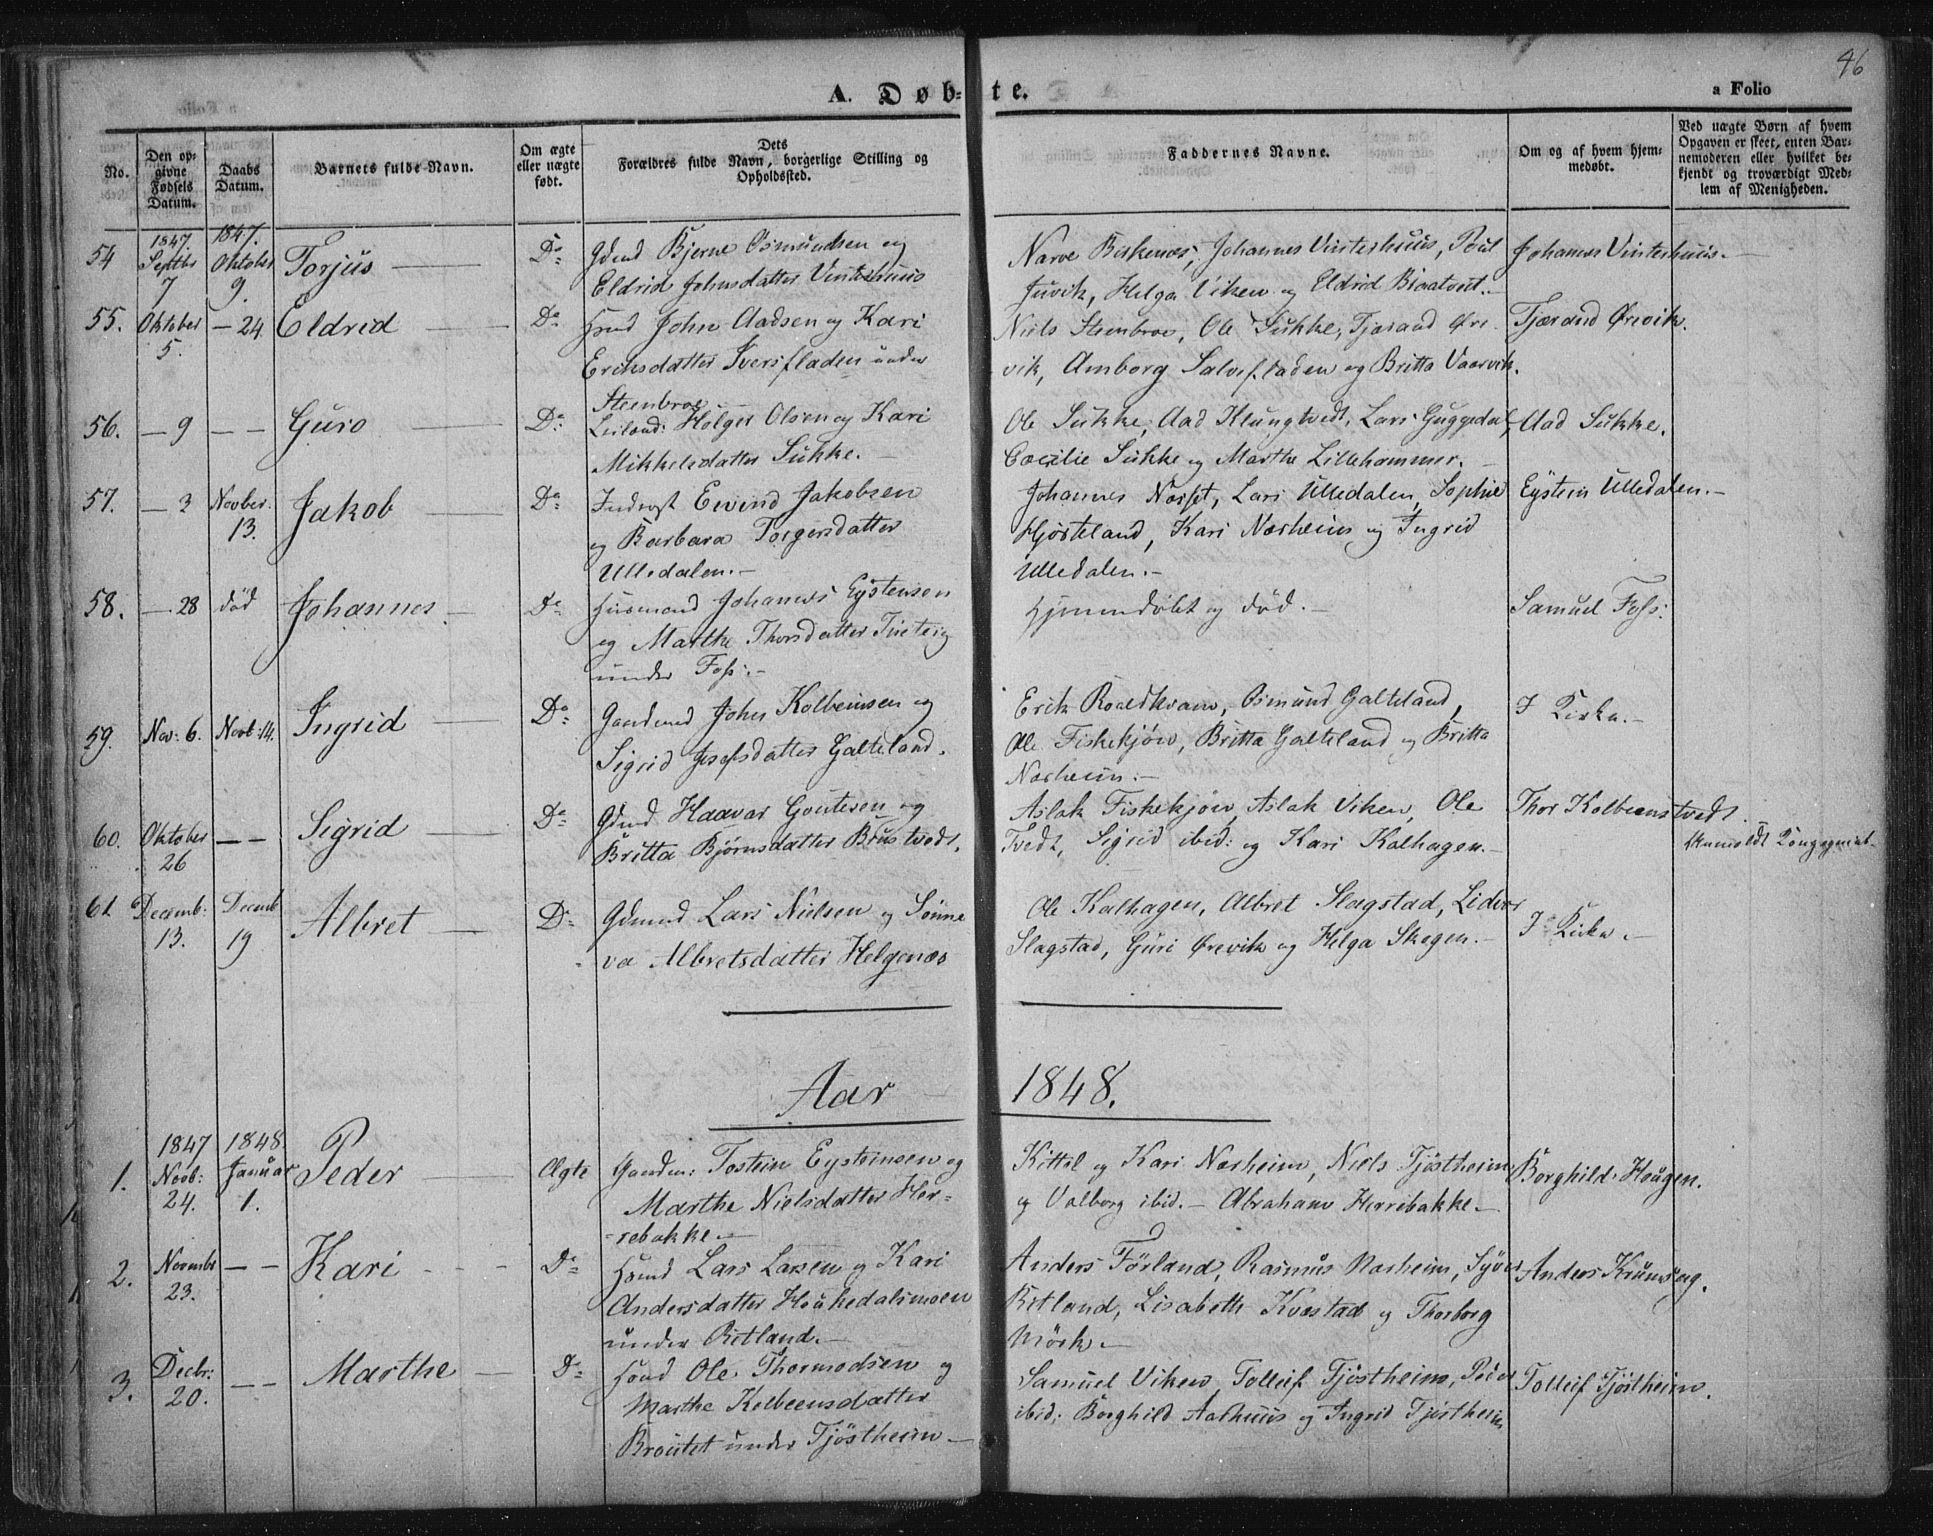 46
A. Døb- te.
a Folio
No.
Den op-
givne
Fødsels
Datum.
Daabs
Datum.
Barnets fulde Navn.
Om ægte
eller uægte
født.
Dets
Forældres fulde Navn, borgerlige Stilling og
Opholdsted.
Faddernes Navne.
Om og af hvem hjem-
medøbt.
Ved uægte Børn af hvem
Opgaven er skeet, enten Bar-
nemoderen eller hvilket be-
kjendt og troværdigt Med-
lem af Menigheden.
54
1847.
Septbr
7
1847.
Oktober
9.
Torjus
Do
Gdmd Bjerne Osmundsen og
Eldrid Johnsdatter Vinterhuus
Narve Birkenæs, Johannes Vinterhuus, Poul
Juvik, Helga Viken og Eldrid
Johannes Vinterhuus.
55.
Oktober
5.
- 24
Eldrid
Do
Hsmd John Aadsen og Kari
Eriksdatter Iversfladen under
Steenbroe
Niels Steenbroe, Ole Sukke, Tjærand Øre-
vik, Amborg Salvesfladen og Britta Vaarvik.
Tjærand Ørevik.
56.
- 9
- -
Guro
Do
Leiland: Holger Olsen og Kari
Mikkelsdatter Sukke.
Ole Sukke, Aad Klungtvedt, Lars Guggedal,
Cæcilie Sukke og Marthe Lillehammer.
Aad Sukke.
57.
- 3
Novber
13.
Jakob
Do
Inderst Eivind Jakobsen
og Barbara Torgersdatter
Ulledalen.
Johannes Næsset, Lars Ulledalen, Sophie
Hjorteland, Kari Nærheim og Ingrid
Ulledalen.
Eystein Ulledalen.
58.
- 28
død
Johannes
Do
Huusmand Johannes Eystensen
og Marthe Thorsdatter
under Foss.
Hjemmedøbt og død.
Samuel Foss.
59.
Nov: 6.
Novb: 14.
Ingrid
Do
Gaardmd John Kolbeinsen og
Sigrid Josefsdatter Galteland.
Erik Roaldkvam, Osmund Galteland,
Ole Fiskekjøn, Britta Galteland og Britta
Nærheim.
I Kirken.
60.
Oktober
26
- -
Sigrid
Do
Gdmd Haavar Goutesen og
Britta Bjørnsdatter Brustvedt.
Aslak Fiskekjøn, Aslak Viken, Ole
Tvedt, Sigrid ibid: og Kari Kalhagen.
Thor Kolbeenstvedt.
61.
Decemb:
13.
Decemb
19
Albret
Do
Gdmand Lars Nielsen og Sønne-
va Albretsdatter Helgenæs
Ole Kalhagen, Albret Slagstad, Lidvor
Slagstad, Guri Ørevik og Helga Skogen.
I Kirken.
Aar 1848.
1.
1847
Novb:
24.
1848.
Januar
1.
Peder
Ægte
Gaardm: Tostein Eysteinsen og
Marthe Nielsdatter Her-
rebakke.
Kittel og Kari Nærheim, Niels Tjøstheim
og Valborg ibid. - Abraham Herrebakke.
Borghild Hougen.
2.
Novmbr
23.
- -
Kari
Do
Hsmd Lars Larsen og Kari
Andersdatter Houkedalsmoen
under Ritland.
Anders Førland, Rasmus Nærheim, Syver
Ritland, Lisabeth Kvæstad og Thorborg
Mørk.
Anders
3.
Decbr:
20.
- -
Marthe
Do
Hsmd Ole Thormodsen og
Marthe Kolbeensdatter
Broutet under Tjøstheim
Samuel Viken, Tolleif Tjøstheim, Peder
ibid: Borghild Aarhuus og Ingrid Tjøstheim
Tolleif Tjøstheim.